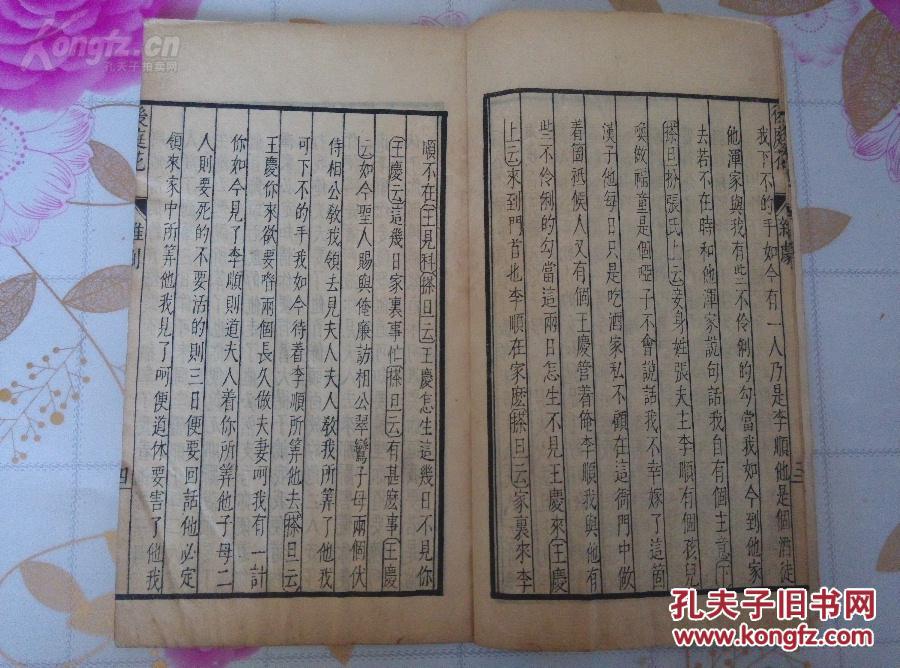 Kongfz.cn
孔夫子拍卖网
後庭花
三
我下不的手如今有一人乃是李順他是個酒徒
他渾家與我有些不伶俐的勾當我如今到他家
去若不在時和他渾家説句話我自有個主意下
搽旦扮張氏上云妾身姓張夫主李順有個孩兒
喚做福童是個啞子不會説話我不幸嫁了這箇
漢子他每日只是吃酒家私不顧在這衙門中做
着個祗候人又有個王慶管着俺李順我與他有
些不伶俐的勾當這兩日怎生不見王慶來王慶
上云來到門首也李順在家麽搽旦云家裏來李
順不在王見科搽旦云王慶怎生這幾日不見你
王慶云這幾日家裏事忙搽旦云有甚麽事王慶
云如今聖人賜與俺廉訪相公翠鸞子母兩個伏
侍相公敎我領去見夫人夫人敎我所筭了他我
可下不的手我如今待着李順所筭他去搽旦云
王慶你來欲要喒兩個長久做夫妻呵我有一計
你如今見了李順則道夫人着你所筭他子母二
人則要死的不要活的則三日便要回話他必定
領來家中所筭他我見了呵便道休要害了他我
後庭花
雜劇
四
孔夫子旧书网
www.kongfz.com